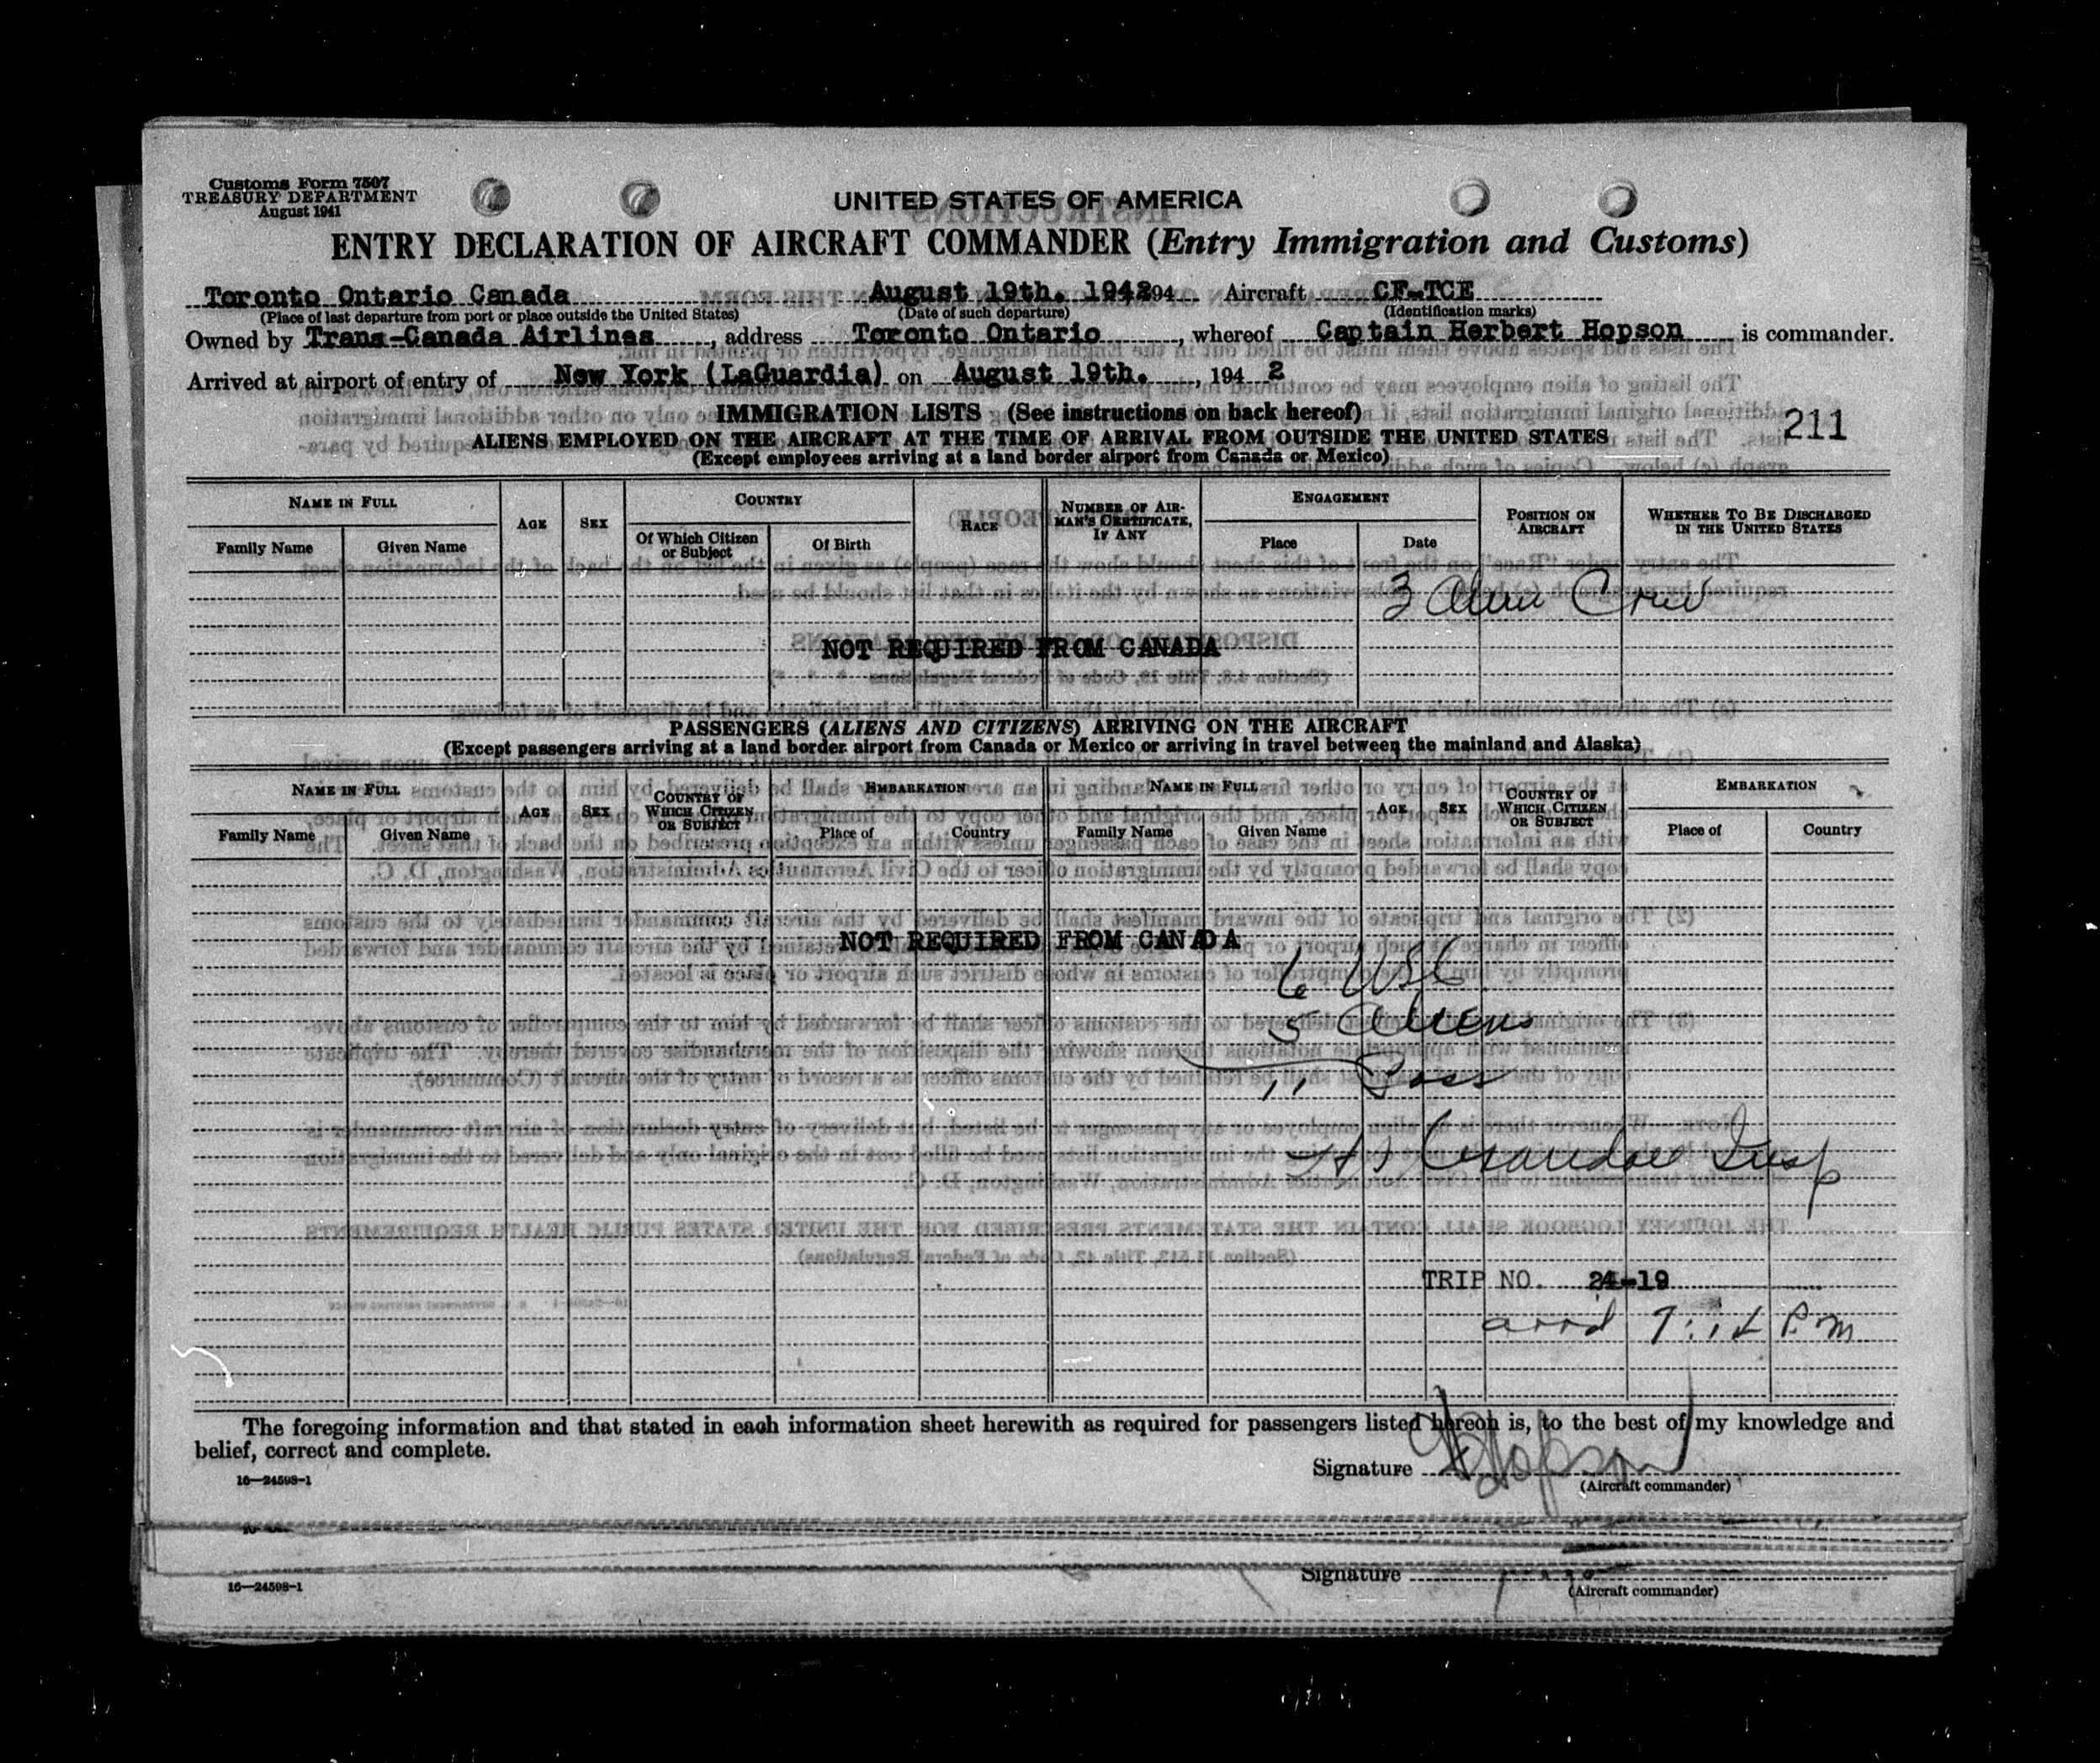 Customs Form 7507
TREASURY DEPARTMENT
August 1941
UNITED STATES OF AMERICA
ENTRY DECLARATION OF AIRCRAFT COMMANDER (Entry Immigration and Customs)
Toronto Ontario Canada August 19th. 1942 194 Aircraft CF-TCE
(Place of last departure from port or place outside the United States) (Date of such departure) (Identification marks)
Owned by Trans-Canada Airlines, address Toronto Ontario, whereof Captain Herbert Hopson is commander.
Arrived at airport of entry of New York (LaGuardia) on August 19th., 194 2
IMMIGRATION LISTS (See instructions on back hereof)
211
ALIENS EMPLOYED ON THE AIRCRAFT AT THE TIME OF ARRIVAL FROM OUTSIDE THE UNITED STATES
(Except employees arriving at a land border airport from Canada or Mexico)
NAME IN FULL AGE SEX COUNTRY RACE NUMBER OF AIRMAN'S CERTIFICATE, IF ANY ENGAGEMENT POSITION ON AIRCRAFT WHETHER TO BE DISCHARGED IN THE UNITED STATES
Family Name Given Name Of Which Citizen or Subject Of Birth Place Date
3 Alien Crew
NOT REQUIRED FROM CANADA
PASSENGERS (ALIENS AND CITIZENS) ARRIVING ON THE AIRCRAFT
(Except passengers arriving at a land border airport from Canada or Mexico or arriving in travel between the mainland and Alaska)
NAME IN FULL AGE SEX COUNTRY OF WHICH CITIZEN OR SUBJECT EMBARKATION NAME IN FULL AGE SEX COUNTRY OF WHICH CITIZEN OR SUBJECT EMBARKATION
Family Name Given Name Place of Country Family Name Given Name Place of Country
NOT REQUIRED FROM CANADA
6 USC
5 Aliens
11 Pass
Insp
TRIP NO. 24-19
arrd P.m
The foregoing information and that stated in each information sheet herewith as required for passengers listed hereon is, to the best of my knowledge and
belief, correct and complete.
Signature H Hopson
(Aircraft commander)
16—24598-1
Signature
(Aircraft commander)
16—24598-1